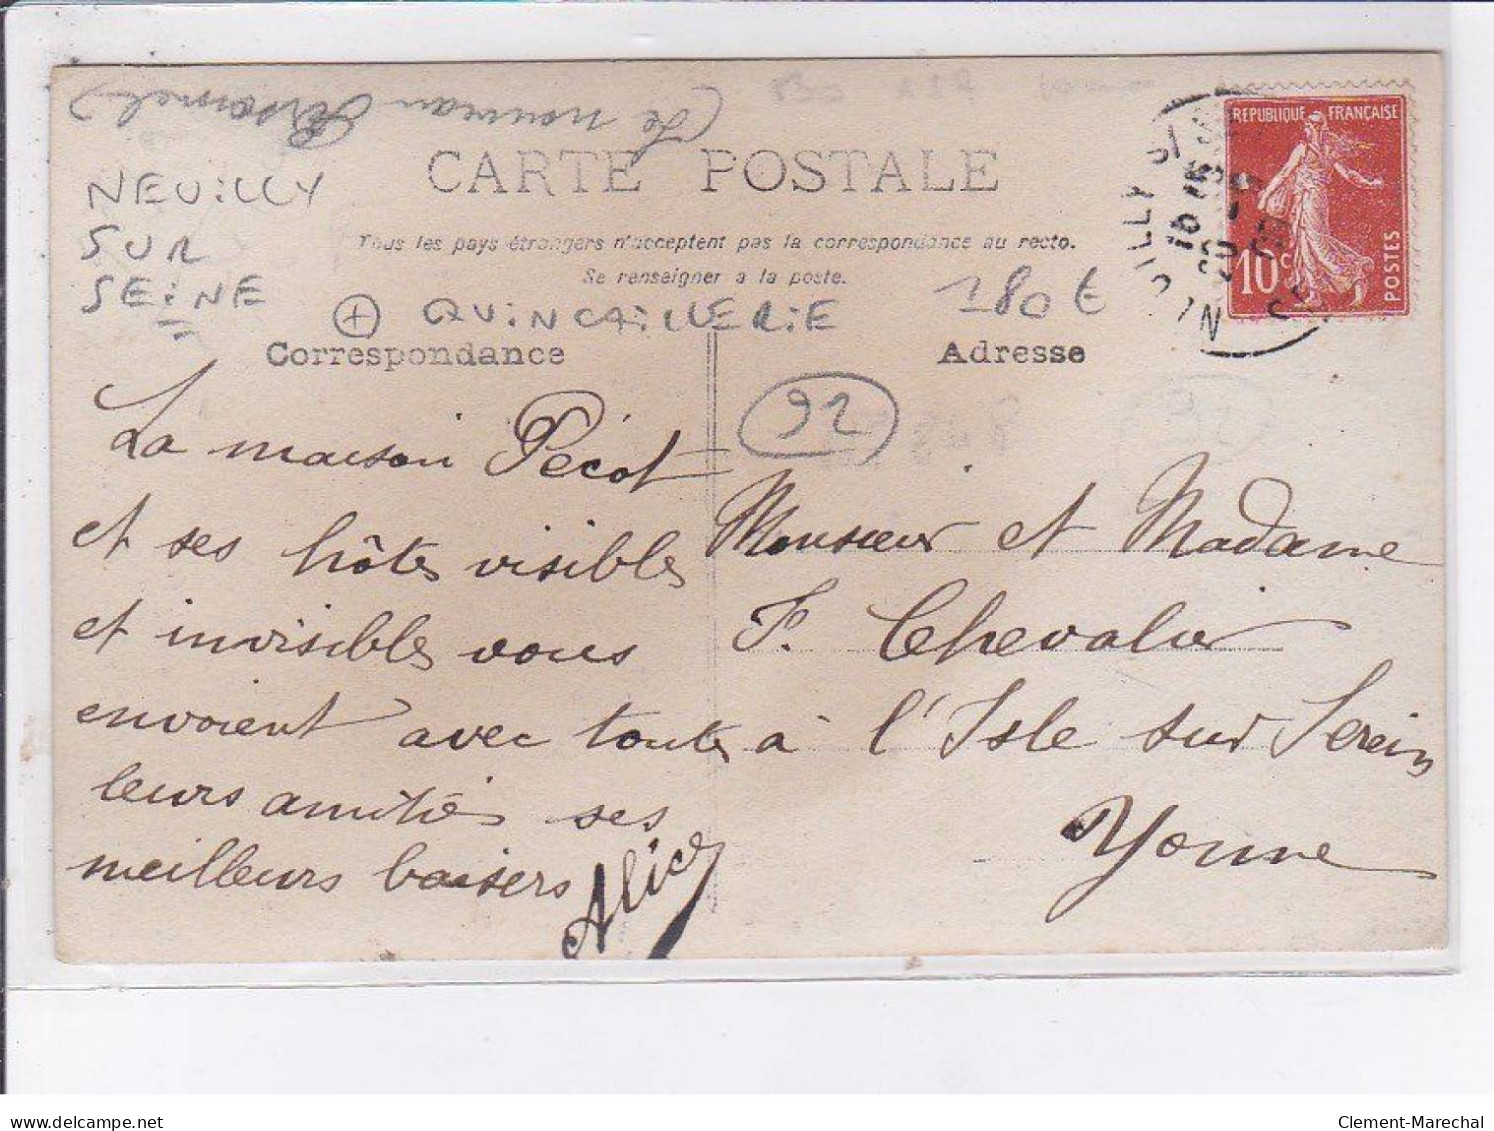 (Le nouveau Personnel)
NEUILLY
SUR
SEINE
CARTE POSTALE
Tous les pays étrangers n'acceptent pas la correspondance au recto.
Se renseigner à la poste.
+ QUINCAILLERIE
180 €
Correspondance
Adresse
92
REPUBLIQUE FRANÇAISE
10 c
POSTES
La maison Pécot
et ses hôtes visibles
et invisibles vous
envoient avec toutes
leurs amitiés ses
meilleurs baisers
Alice
Monsieur et Madame
F. Chevalier
à l'Isle sur Serein
Yonne
Clement-Marechal
www.delcampe.net